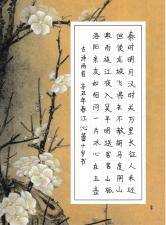 秦时明月汉时关万里长征人未还
但使龙城飞将在不教胡马度阴山
寒雨连江夜入吴平明送客楚山孤
洛阳亲友如相问一片冰心在玉壶
古诗两首 辛丑年春江沁 十岁书